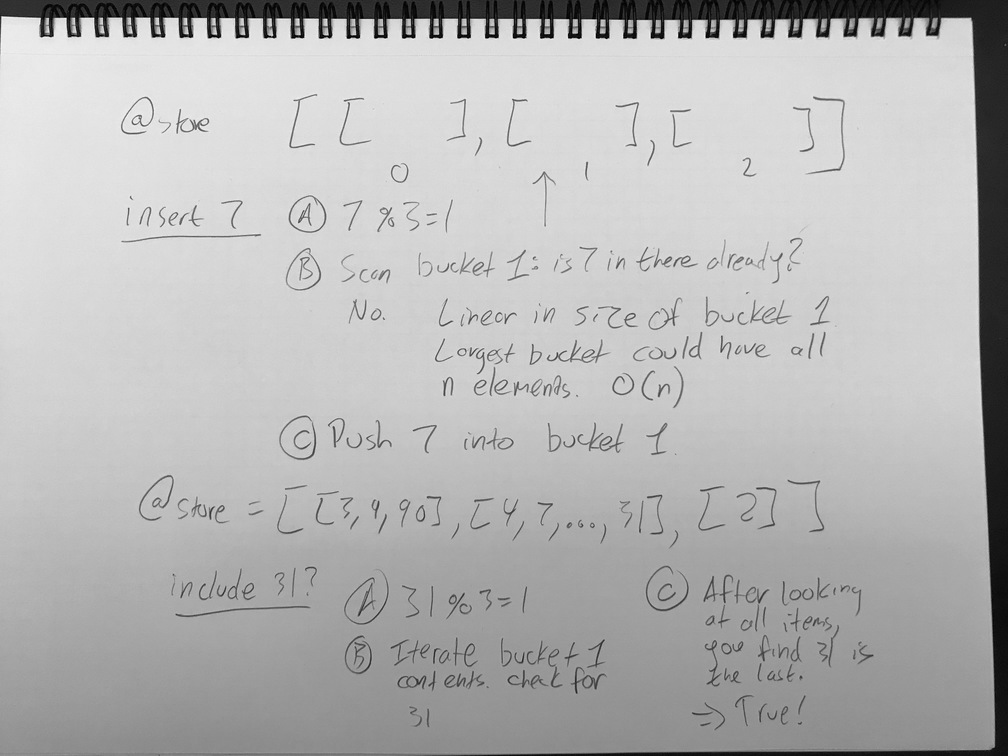 @store [ [ ], [ ], [ ] ]
0 1 2
insert 7 Ⓐ 7 % 3 = 1
Ⓑ Scan bucket 1: is 7 in there already?
No. Linear in size of bucket 1
Largest bucket could have all
n elements. O(n)
Ⓒ Push 7 into bucket 1.
@store = [ [3, 9, 90], [4, 7, ..., 31], [2] ]
include 31? Ⓐ 31 % 3 = 1
Ⓑ Iterate bucket 1
contents. check for
31
Ⓒ After looking
at all items,
you find 31 is
the last.
⇒ True!